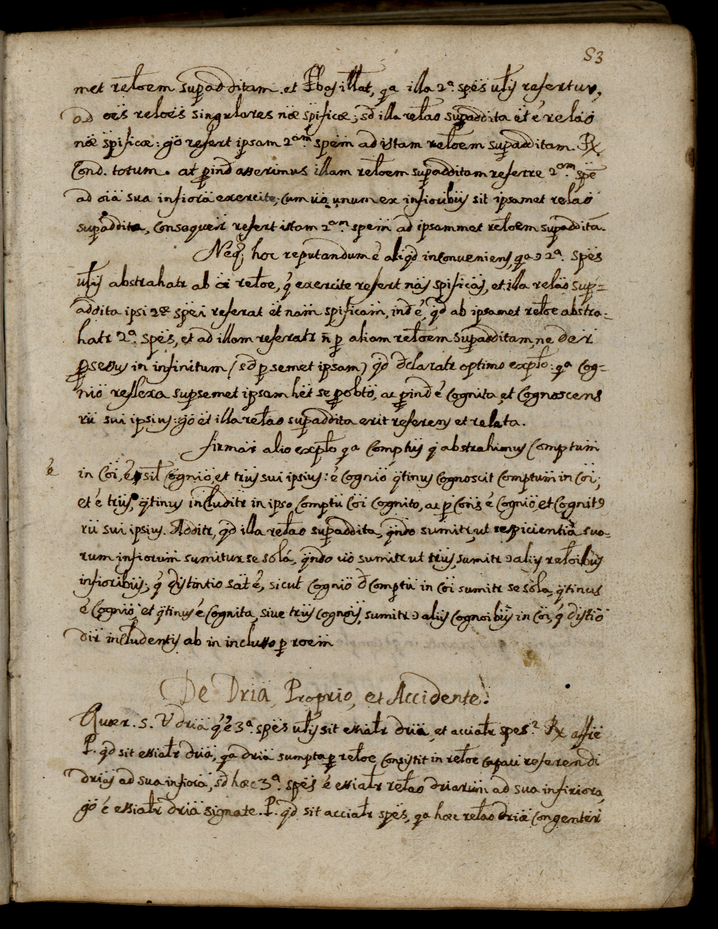 53
met reloem supadditam. et Pbos illat, qa illa 2ª. spës ulis refertur,
ad oës reloës singulares næ spificæ; sd illa relao supaddita ët é relao
næ spificæ: gö refert ipsam 2am. spëm ad istam reloem supadditam. R
Cond. totum. at pind asserimus illam reloem supadditam referre 2am. spë
ad oia sua infiora exercite; cum uö unum ex infioribus sit ipsamet relao
supaddita, Consequer refert istam 2am spem ad ipsammet reloem supaddita.
Neq; hoc reputandum é aliqd inConveniens, qa 2ª. spës
ulis abstrahatr ab oi reloe, q exercite refert näs spificas, et illa relao sup=
addita ipsi 2æ spei referat ët nam spificam, ind é, qd ab ipsamet reloe abstra:
hatr 2ª. spës, et ad illam referatr ñ p aliam reloem supadditam, ne der
pcessus in infinitum (sd p semet ipsam) qd dclaratr optimo explo: qa Cog=
nio reflexa supsemet ipsam hët se p obto, ac pind é Cognita et Cognoscens
rü sui ipsius: gö ët illa relao supaddita erit referens et relata.
firmar alio explo qa Comptus q abstrahimus Comptum
é in Coi, é sil Cognio, et trus sui ipsius: é Cognio qtinus Cognoscit Comptum in Coi;
et é trus, qtinus includitr in ipso Comptu Coi Cognito, ac p Cons é Cognio et Cognit9
rü sui ipsius. Additr, qd illa relao supaddita, qndo sumitr, ut respicientia suo-
rum infiorum sumitur se sola, qndo uö sumitr ut trus, sumitr aliis reloibus
infioribus; q distontio sat é, sicut Cognio d Comptu in Coi sumitr se sola, qtinus
é Cognio, et qtinus é Cognita, sive trus Cognois, sumitr aliis Cognoibus in Coi, q distio
dir includentis ab in inclusso p roem
De Dria, Proprio, et Accidente.
Quer. s. V dria q é 3ª spës ulis sit essialr dria, et accialr spes? R affië
P. qd sit essialr dria, qa dria sumpta p reloe, Consistit in reloe Capaci referendi
drias ad sua infiora, sd hæc 3ª. spës é essialr relao driarum ad sua infiriora,
gö é essialr dria signate. P. qd sit accialr spës, qa hæc relao driæ Congenteri